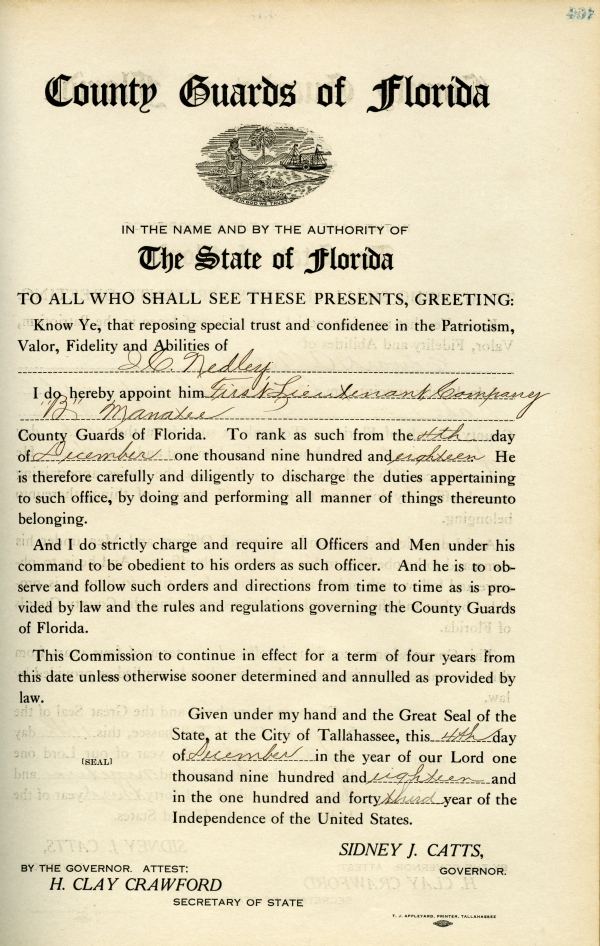 County Guards of Florida
IN GOD WE TRUST
IN THE NAME AND BY THE AUTHORITY OF
The State of Florida
TO ALL WHO SHALL SEE THESE PRESENTS, GREETING:
Know Ye, that reposing special trust and confidence in the Patriotism,
Valor, Fidelity and Abilities of
J. C. Nedley,
I do hereby appoint him First Lieutenant Company
"B" Manatee
County Guards of Florida. To rank as such from the 4th day
of December one thousand nine hundred and eighteen He
is therefore carefully and diligently to discharge the duties appertaining
to such office, by doing and performing all manner of things thereunto
belonging.
And I do strictly charge and require all Officers and Men under his
command to be obedient to his orders as such officer. And he is to ob-
serve and follow such orders and directions from time to time as is pro-
vided by law and the rules and regulations governing the County Guards
of Florida.
This Commission to continue in effect for a term of four years from
this date unless otherwise sooner determined and annulled as provided by
law.
Given under my hand and the Great Seal of the
State, at the City of Tallahassee, this 4th day
of December in the year of our Lord one
[SEAL]
thousand nine hundred and eighteen and
in the one hundred and forty third year of the
Independence of the United States.
SIDNEY J. CATTS,
GOVERNOR.
BY THE GOVERNOR. ATTEST:
H. CLAY CRAWFORD
SECRETARY OF STATE
T. J. APPLEYARD, PRINTER, TALLAHASSEE